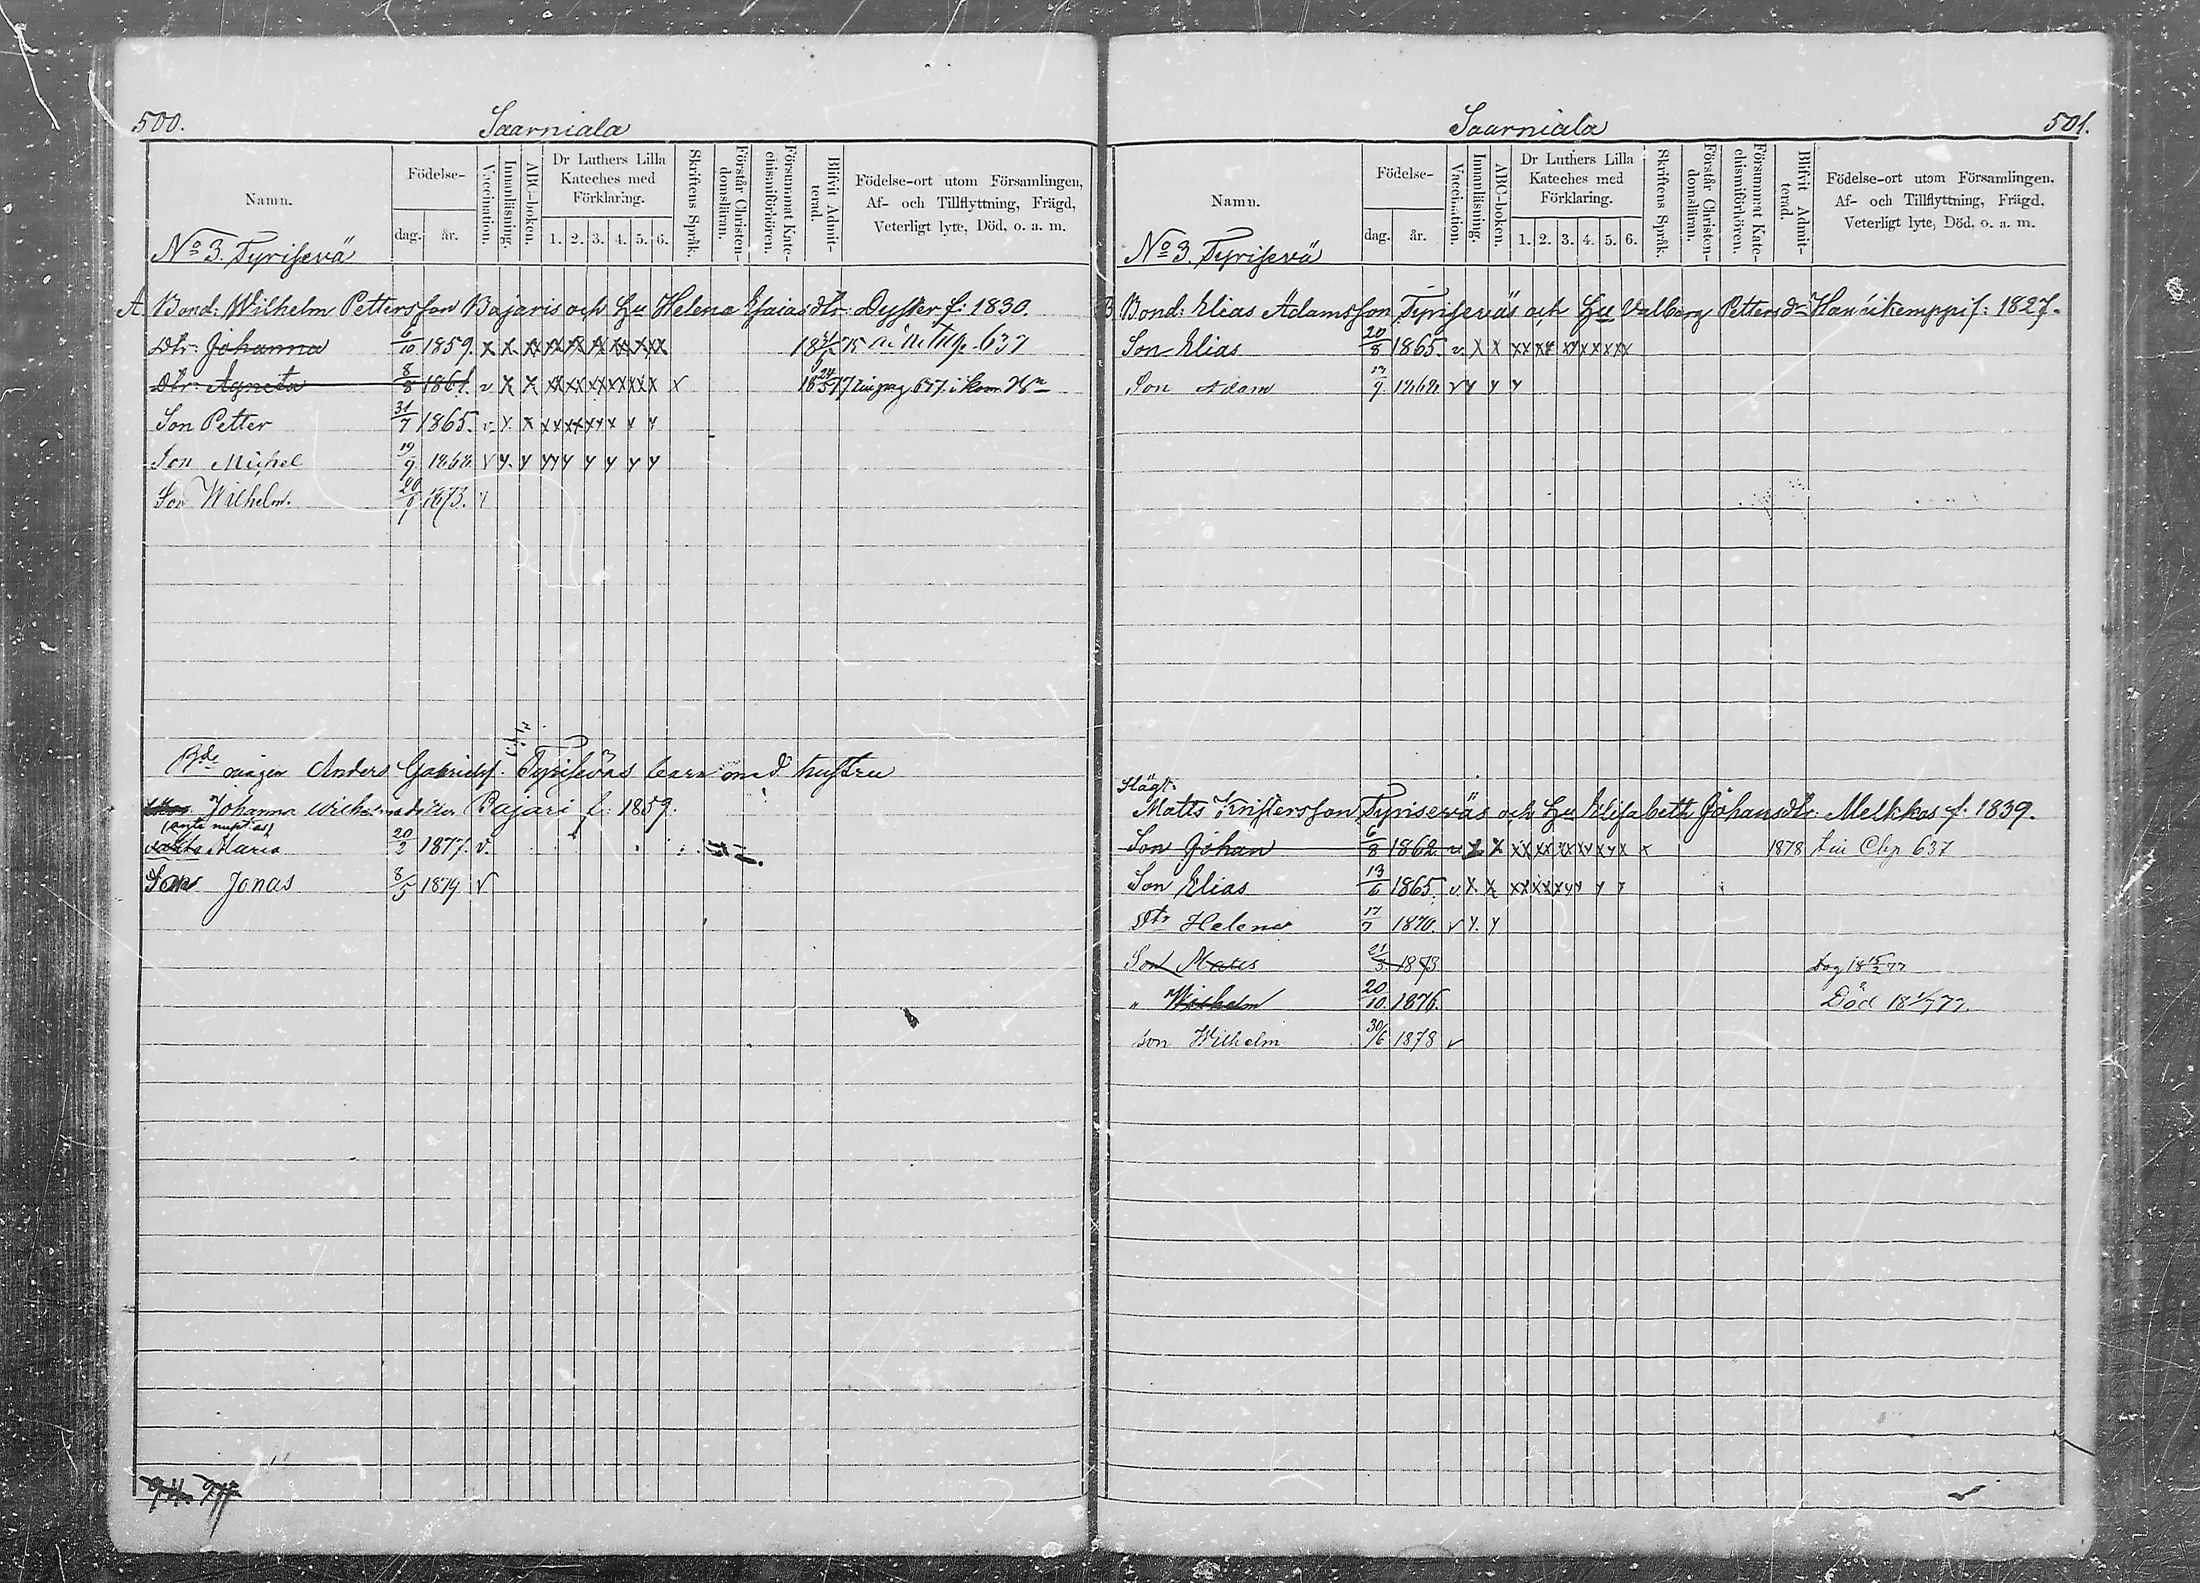 500.
Saarniala
Namn.
Födelse-
dag.
år.
Vaccination.
Innanläsning.
ABC-boken.
Dr Luthers Lilla
Kateches med
Förklaring.
1. 2. 3. 4. 5. 6.
Skriftens Språk.
Förstår Christen-
domsläran.
Försummat Kate-
chismiförhören.
Blifvit Admit-
terad.
Födelse-ort utom Församlingen,
Af- och Tillflyttning, Frägd,
Veterligt lyte, Död, o. a. m.
No 3. Tyrisevä
A Bond: Wilhelm Pettersson Bajaris och Hu Helena Esaiasdtr Dysster f: 1830.
Dtr Johanna 6/10 1859. x x x xx x x xx xx xx 75 637
Dtr Agneta 8/8 1861. v x x xx xx xx xx xx x x 18 24/5 77 Lin pag 637
Son Petter 31/7 1865. v. y. x x x x x x y x y y
Son Michel 19/9 1868. v y. y y y y y y y y
Son Wilhelm. 20/9 1873.
Anders Gabrielss. Tyrisevas barn med hustru
Johanna Pajari f: 1859.
(ante nuptias)
Maria 20/2 1877. v.
Son Jonas 8/5 1879 v
Saarniala
501.
Namn.
Födelse-
dag.
år.
Vaccination
Innanläsning.
ABC-bokon.
Dr Luthers Lilla
Kateches med
Förklaring.
1. 2. 3. 4. 5. 6.
Skriftens Språk.
Förstår Christen-
domsläran.
Försummat Kate-
chismiförhören.
Blifvit Admit-
terad.
Födelse-ort utom Församlingen,
Af- och Tillflyttning, Frägd,
Veterligt lyte, Död, o. a. m.
No 3. Tyrisevä
B Bond: Elias Adamsson Tyriseväs och Hu Valborg Petters dr f: 1827.
Son Elias 20/8 1865. v. x x xx xx xy x x x x x
Son Adam 17/9 1868 v y y y
Slägt:
Matts Kristersson Tyriseväs och Hu Elisabeth Johansdtr. Melkkas f: 1839.
Son Johan 6/8 1862. v. x x xx xx xx x y x y x x 1878 637
Son Elias 13/6 1865. v. x x xx x x x y y y y
Dtr Helena 17/7 1870. v y. y
Son Matts 21/3 1873 Dog 18 15/2 77
" Wilhelm 20/10. 1876. Död 18 1/7 77.
Son Wilhelm 30/6 1878 v